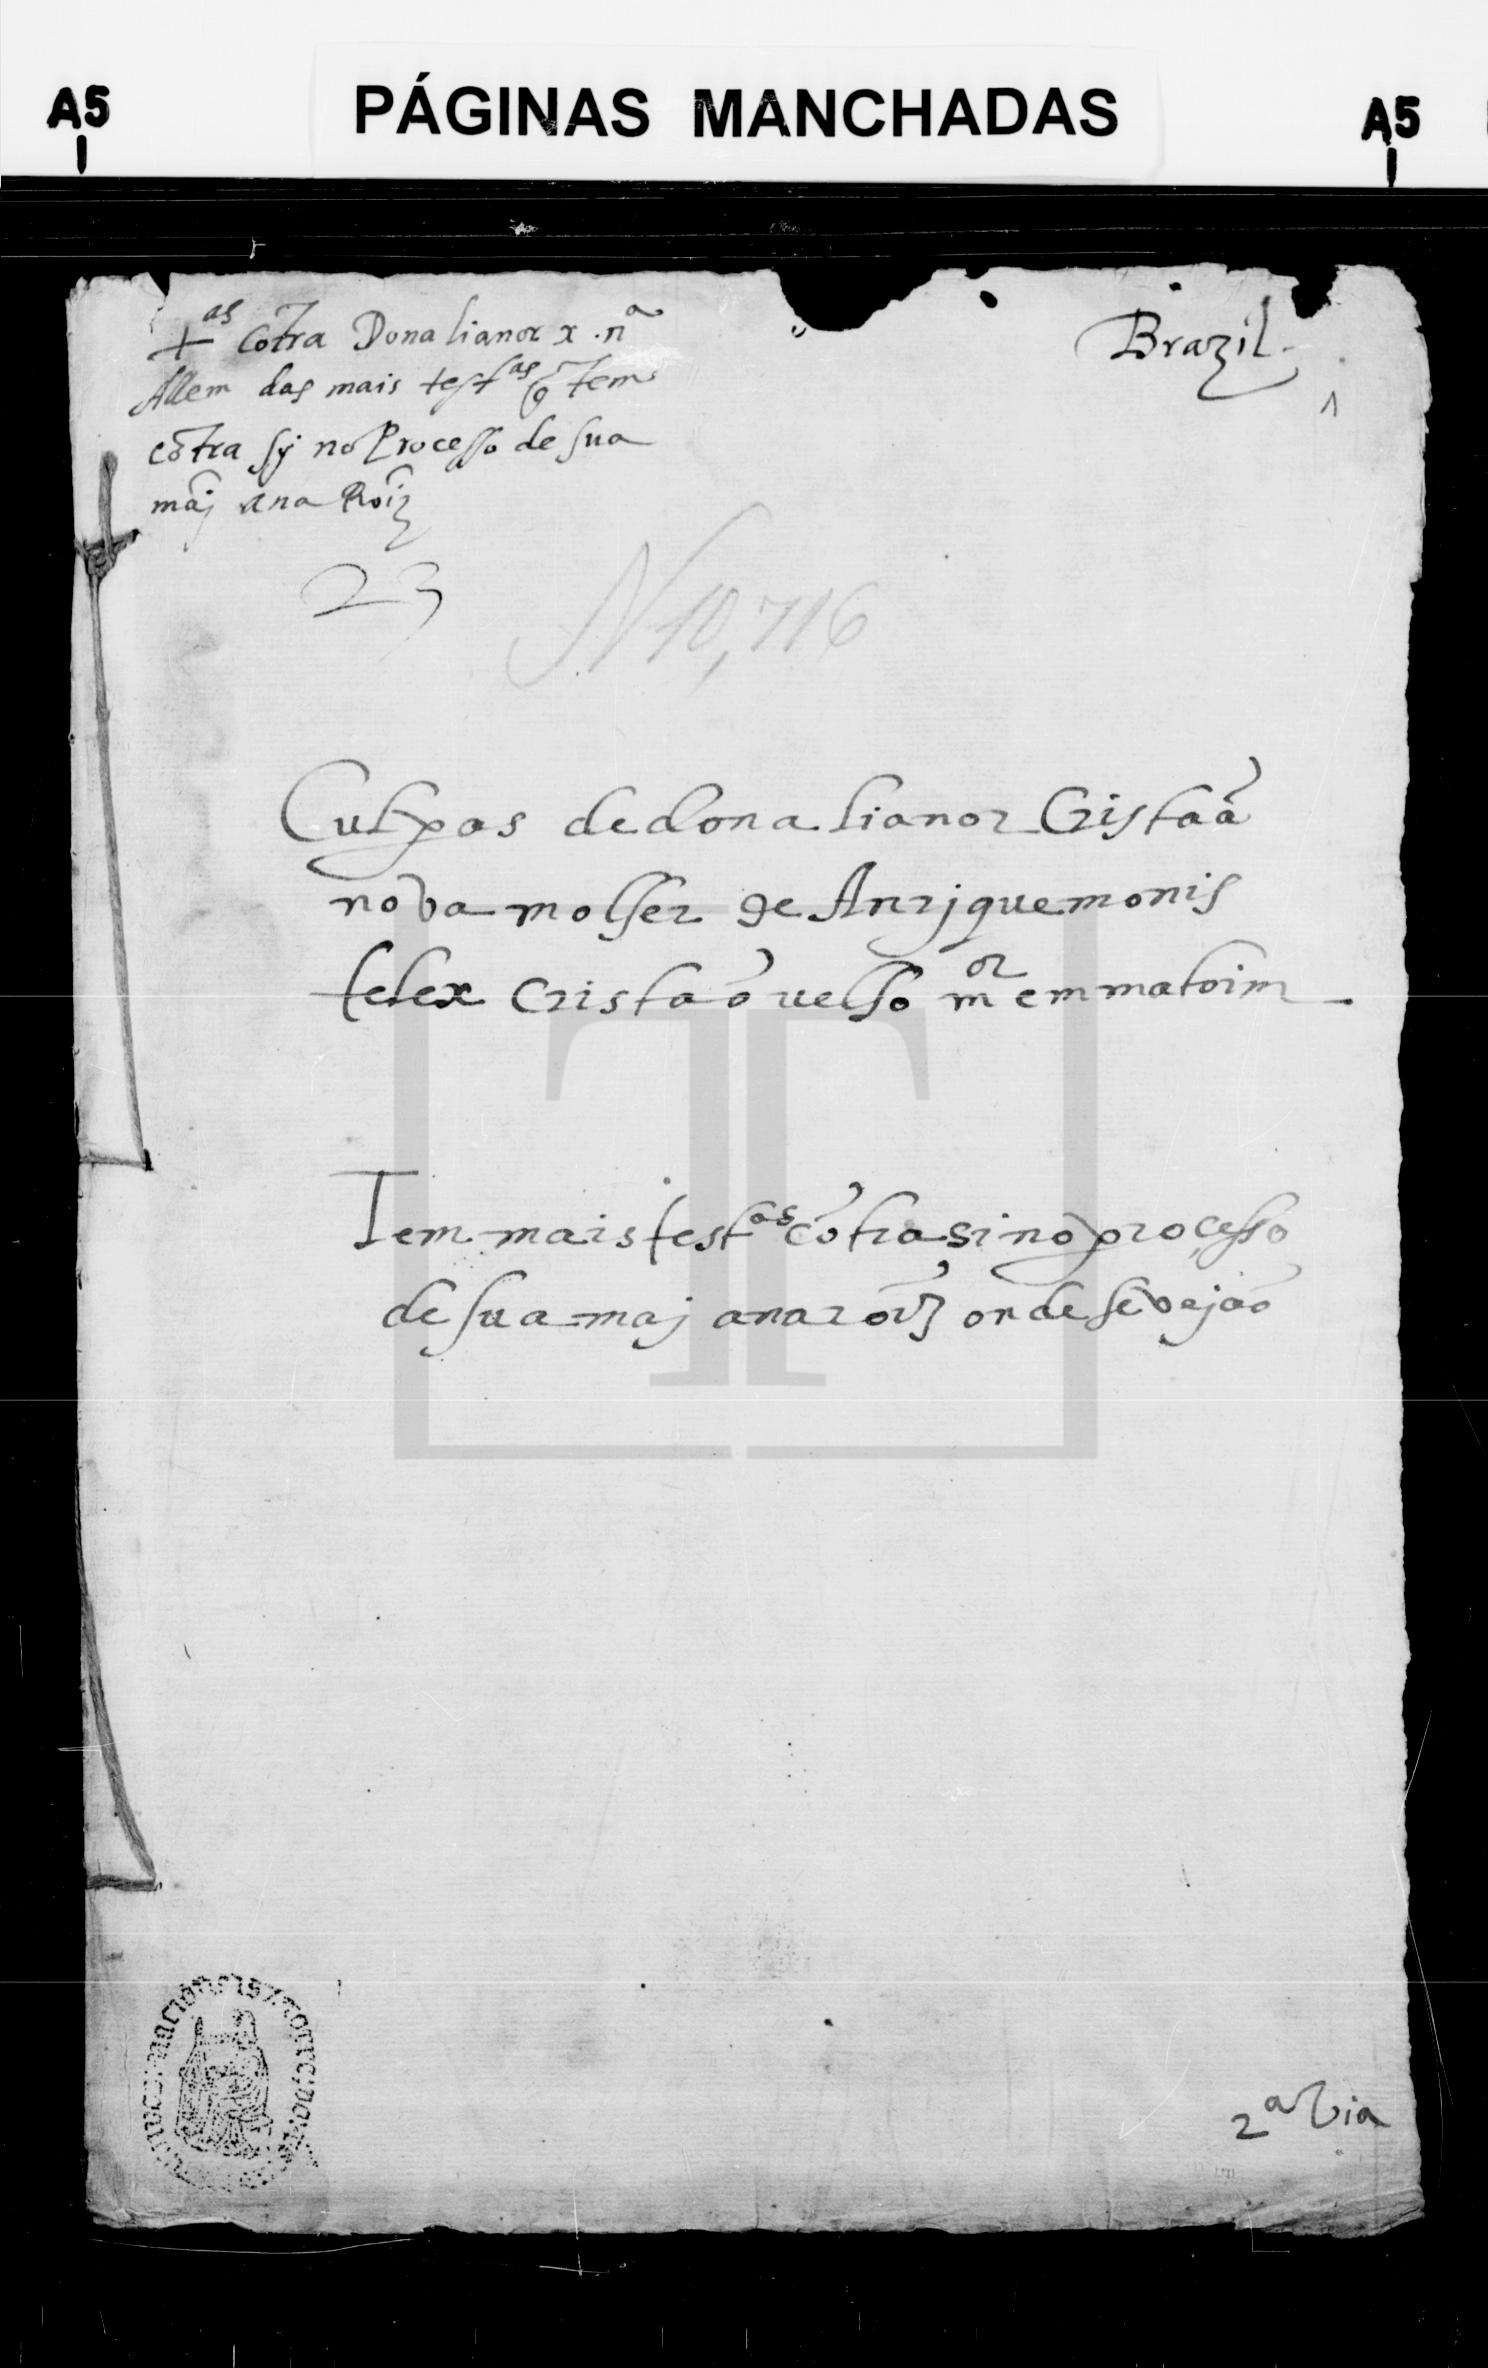 A5 PÁGINAS MANCHADAS A5
+as Cõtra Dona lianor x. nª
Allem das mais testas q̃ tem
cõtra sy no Processo de sua
mãj ana Roiz
Brazil
1
23
N 10,716
Culpas de dona lianor Cristaã
nova molher de Anrjque monis
telex Cristaõ velho mor em matoim
Tem mais testas cõtra si no proçesso
de sua maj ana roĩz onde se vejaõ
2ª via